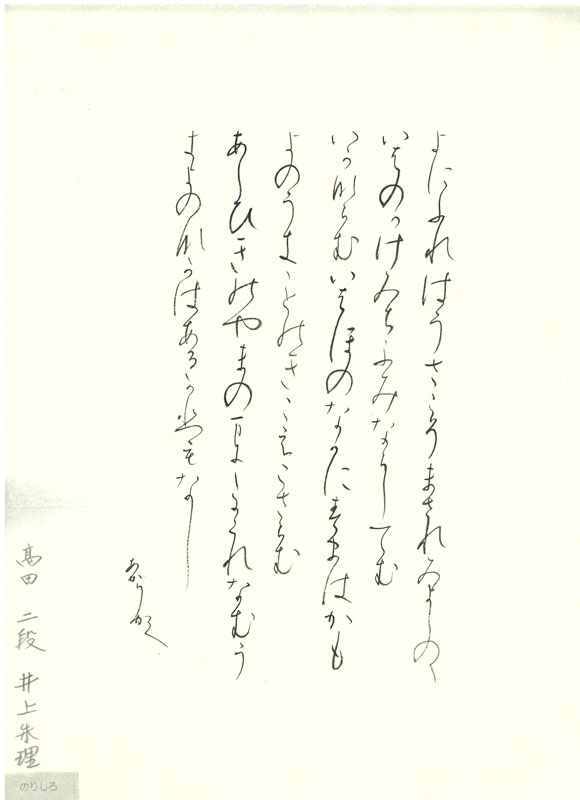 よにふれはうさこそまされみよしのゝ
いはのかけみちふみならしてむ
いかならむいはほのなかにすまはかは
よのうきことのきこえこさらむ
あしひきのやまのまにまにかくれなむう
きよのなかはあるかひもなし
あかりかく
高田 二段 井上朱理
のりしろ